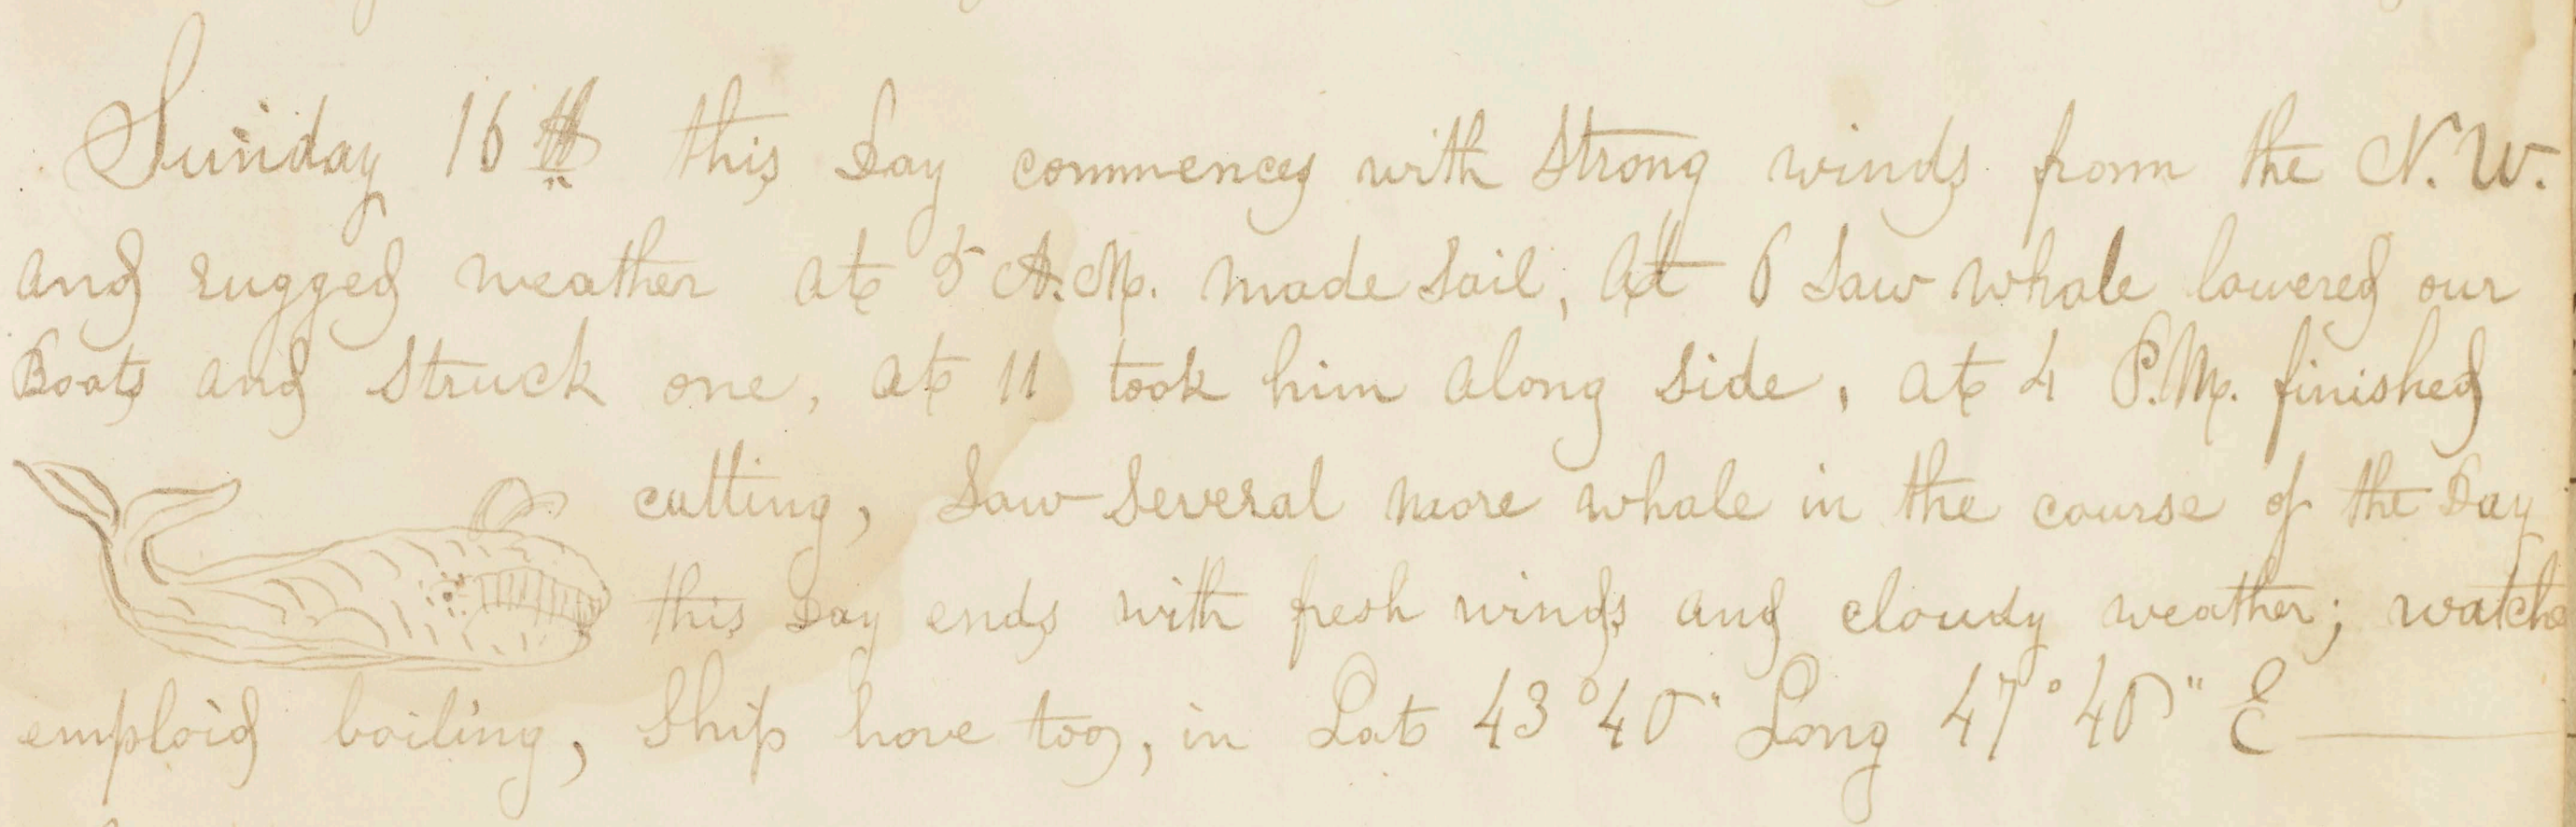 Sunday 16th this Day commences with Strong winds from the N.W.
and rugged weather at 5 A.M. made Sail, at 6 Saw whale lowered our
Boats and Struck one, at 11 took him along Side, at 4 P.M. finished
cutting, Saw Several more whale in the course of the Day
this Day ends with fresh winds and cloudy weather; watch
emploid boiling, Ship hove too, in Lat 43°40" Long 47°40" E